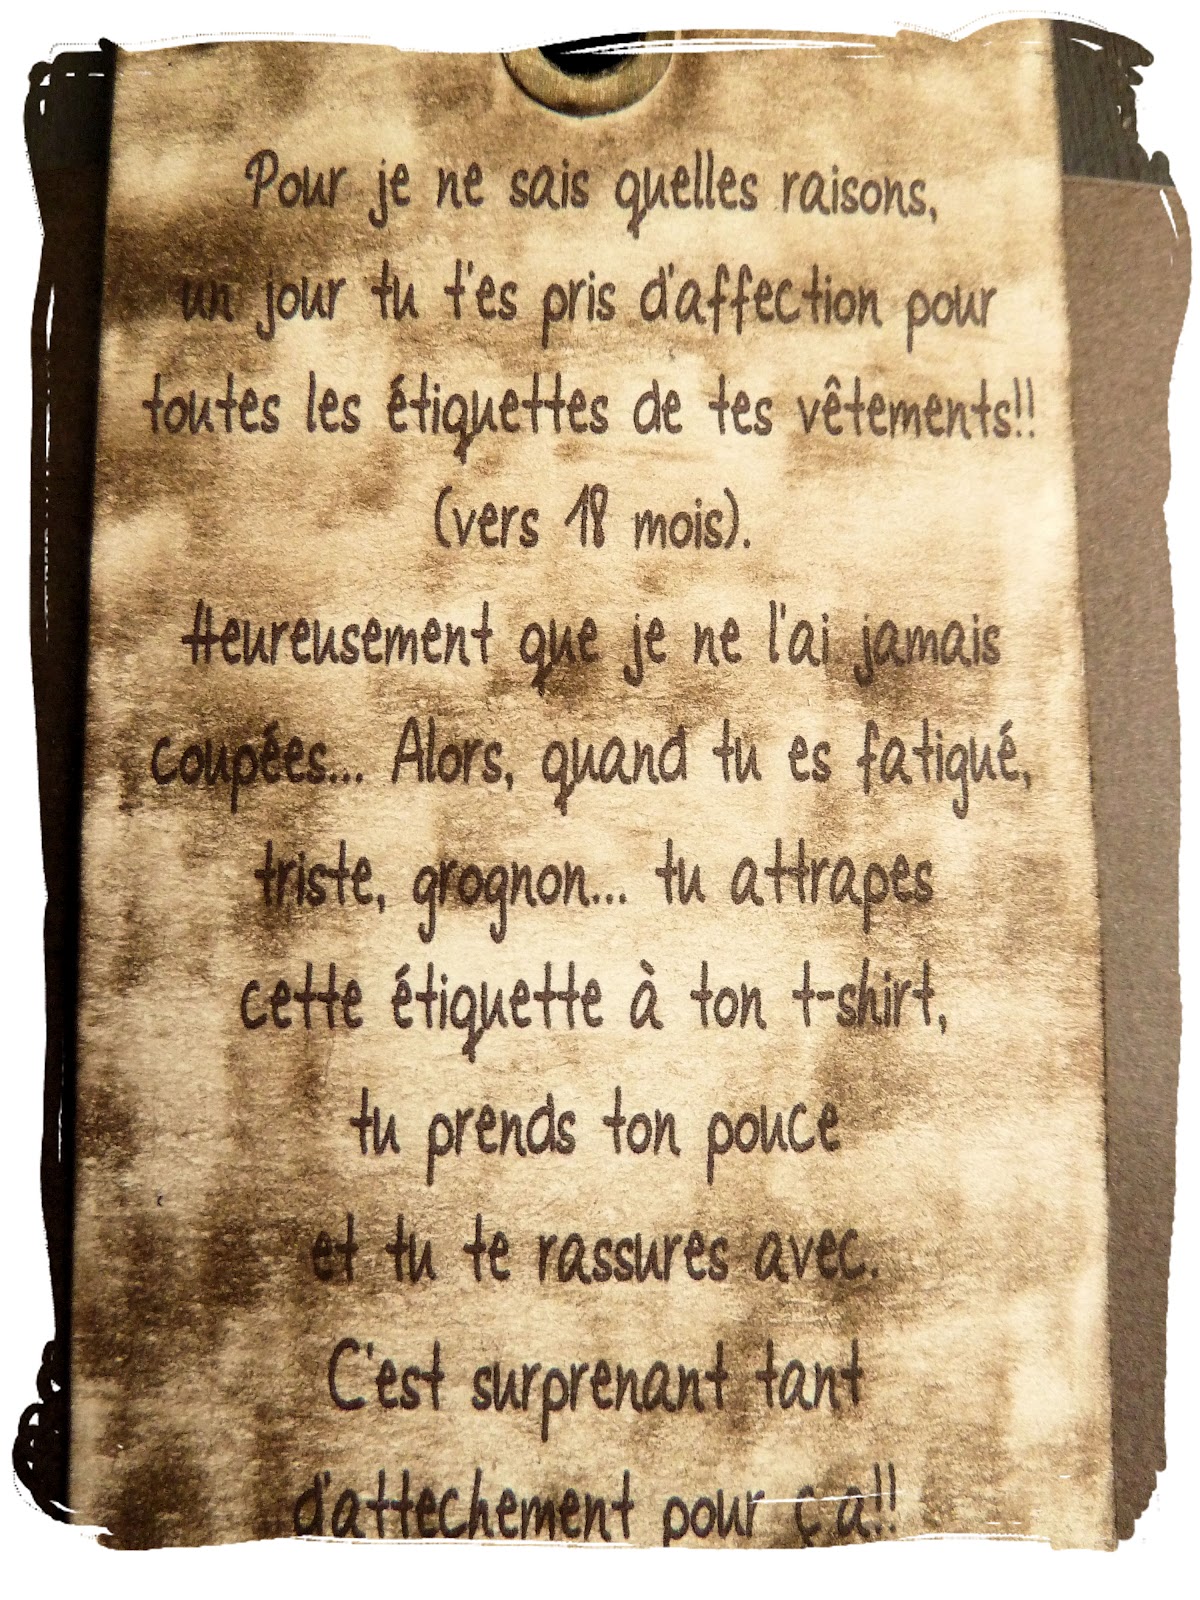 Pour je ne sais quelles raisons,
un jour tu t'es pris d'affection pour
toutes les étiquettes de tes vêtements!!
(vers 18 mois).
Heureusement que je ne l'ai jamais
coupées... Alors, quand tu es fatigué,
triste, grognon... tu attrapes
cette étiquette à ton t-shirt,
tu prends ton pouce
et tu te rassures avec.
C'est surprenant tant
d'attechement pour ça!!